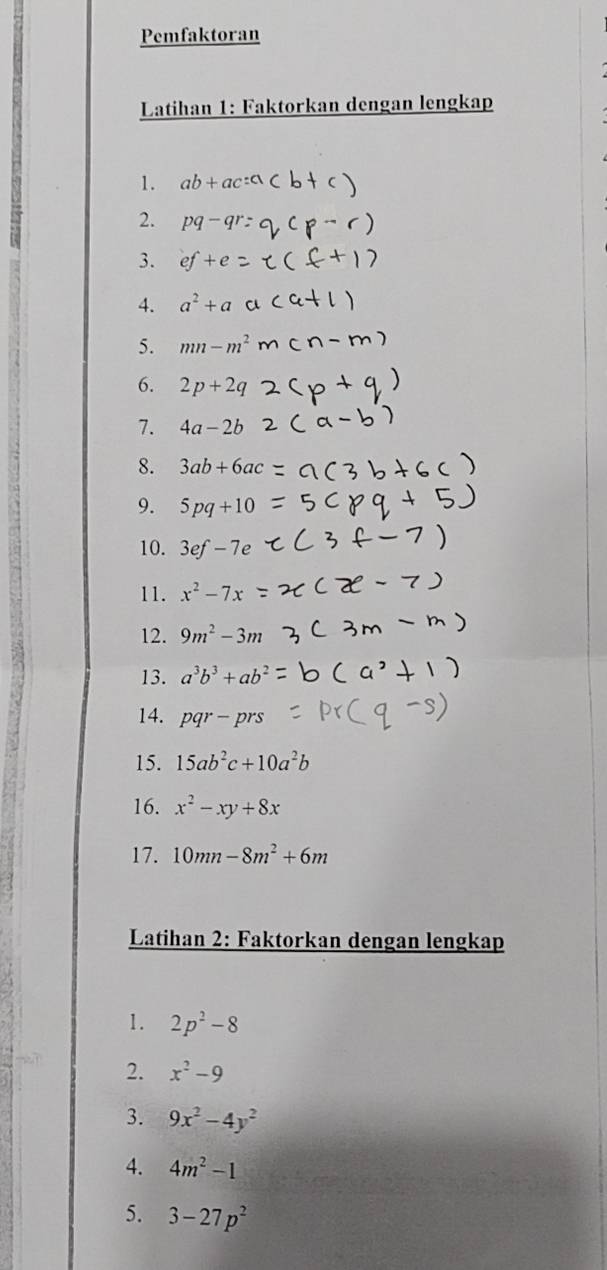 Pemfaktoran
Latihan 1: Faktorkan dengan lengkap
1. ab + ac = a(b + c)
2. pq − qr = q(p − r)
3. ef + e = e(f + 1)
4. a² + a a(a + 1)
5. mn − m² m(n − m)
6. 2p + 2q 2(p + q)
7. 4a − 2b 2(a − b)
8. 3ab + 6ac = a(3b + 6c)
9. 5pq + 10 = 5(pq + 5)
10. 3ef − 7e e(3f − 7)
11. x² − 7x = x(x − 7)
12. 9m² − 3m 3(3m − m)
13. a³b³ + ab² = b(a³ + 1)
14. pqr − prs = pr(q − s)
15. 15ab²c + 10a²b
16. x² − xy + 8x
17. 10mn − 8m² + 6m
Latihan 2: Faktorkan dengan lengkap
1. 2p² − 8
2. x² − 9
3. 9x² − 4y²
4. 4m² − 1
5. 3 − 27p²